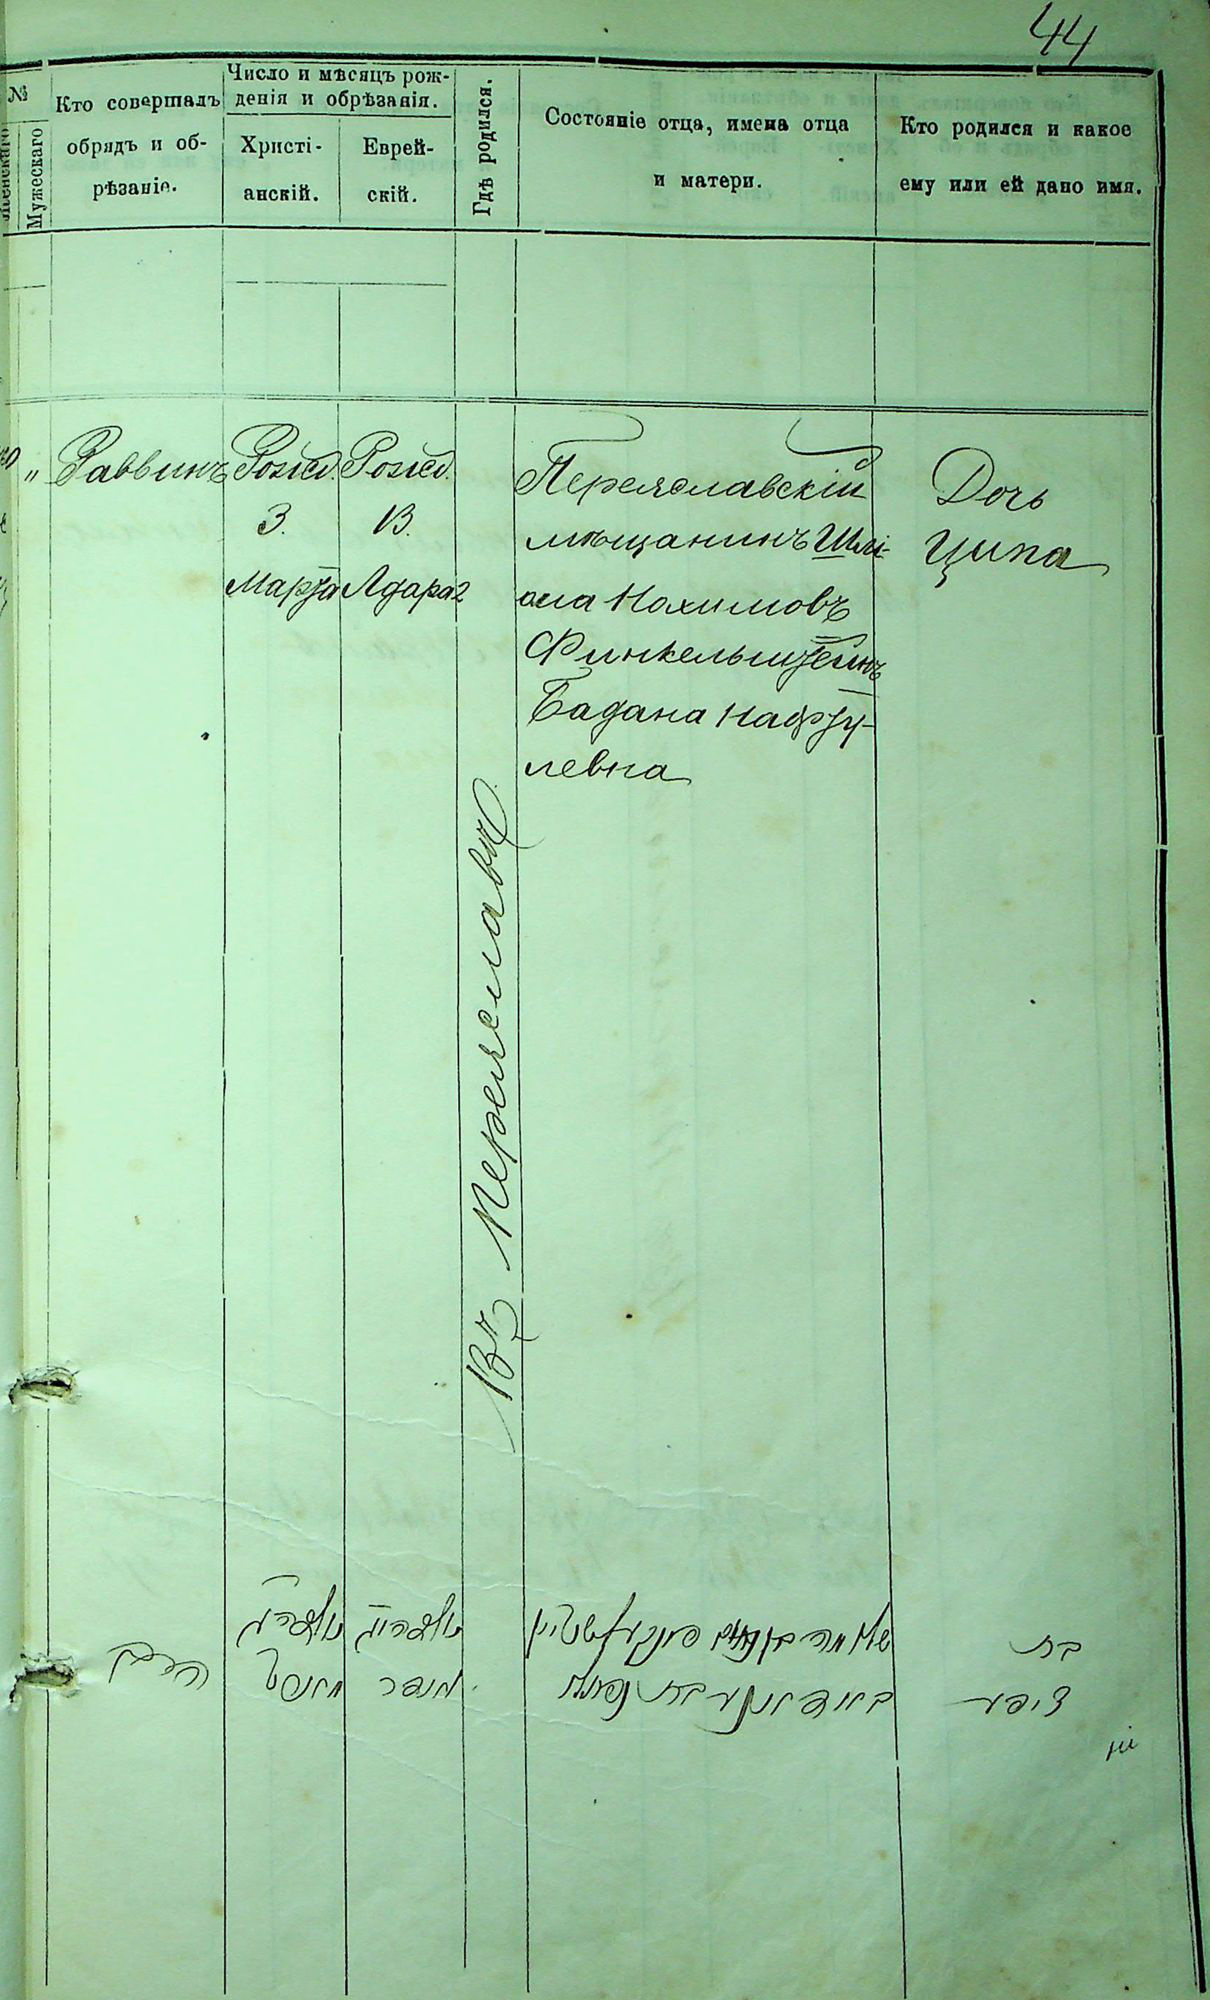 44
№
Женскаго
Мужескаго
Кто совершалъ
обрядъ и об-
рѣзаніе.
Число и мѣсяцъ рож-
денія и обрѣзанія.
Христі-
анскій.
Еврей-
скій.
Гдѣ родился.
Состояніе отца, имена отца
и матери.
Кто родился и какое
ему или ей дано имя.
"
Раввинъ
Рожд.
3.
Марта
Рожд.
13.
Адара 2
Въ Переяславѣ
Переяславскій
мѣщанинъ Шлі-
ома Нохимовъ
Финкельштейнъ
Бадана Нафту-
левна
Дочь
Ципа
הרב
בת
ציפע